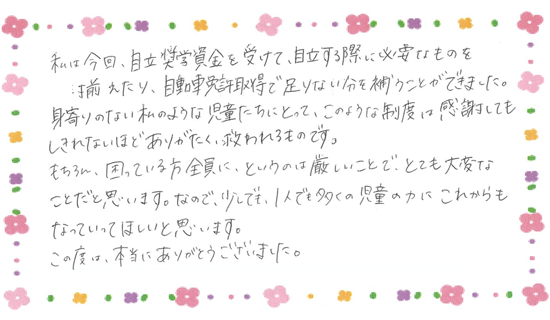 私は今回、自立奨学資金を受けて、自立する際に必要なものを
揃えたり、自動車免許取得で足りない分を補うことができました。
身寄りのない私のような児童たちにとって、このような制度は感謝しても
しきれないほどありがたく、救われるものです。
もちろん、困っている方全員に、というのは厳しいことで、とても大変な
ことだと思います。なので、少しでも、1人でも多くの児童の力に これからも
なっていってほしいと思います。
この度は、本当にありがとうございました。